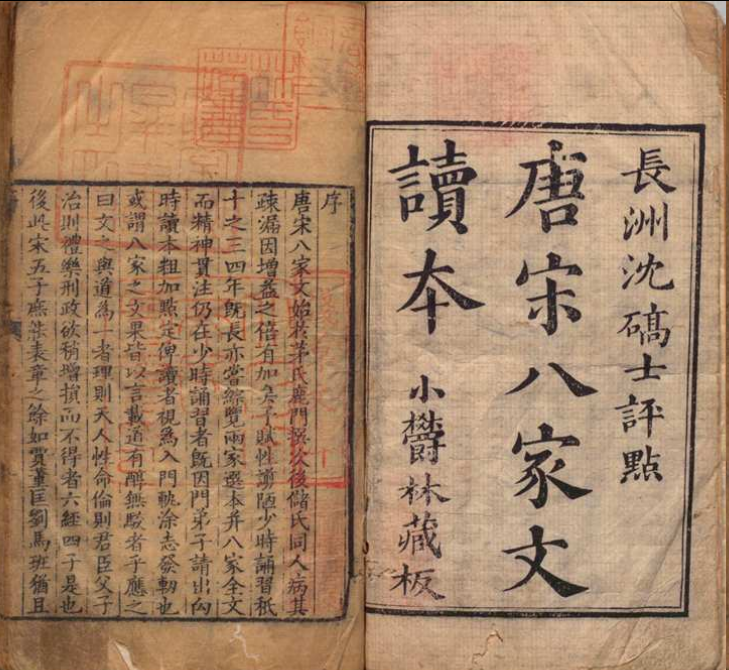 長洲沈碻士評點
唐宋八家文
讀本
小鬱林藏板
序
唐宋八家文始於茅氏鹿門撰次後儲氏同人病其
疎漏因增益之倍有加矣予賦性謭陋少時誦習秖
十之三四年既長亦嘗綜覽兩家選本并八家全文
而精神貫注仍在少時誦習者既因門弟子請出向
時讀本粗加點定俾讀者視爲入門軌涂志發軔也
或謂八家之文果皆以言載道有醇無駁者乎應之
曰文之與道爲一者理則天人性命倫則君臣父子
治則禮樂刑政欲稍增損而不得者六經四子是也
後此宋五子庶能表章之餘如賈董匡劉馬班猶且